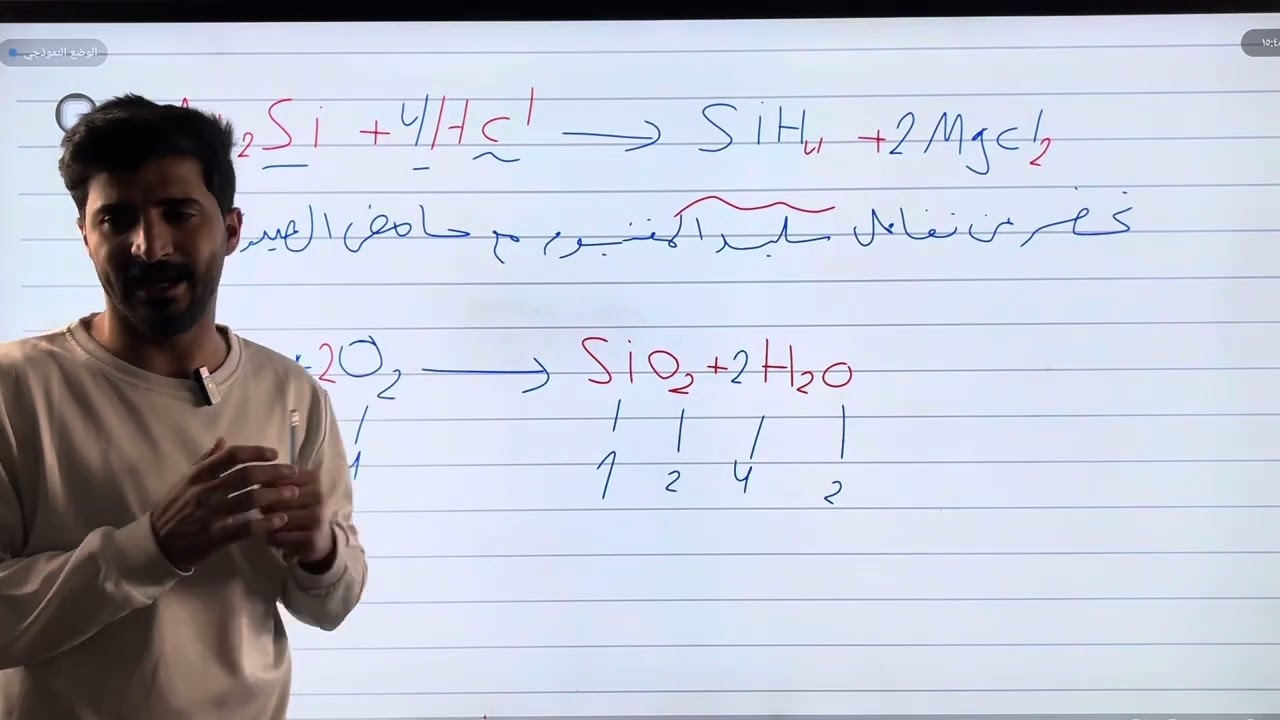 الوضع النموذجي
2Si + 4HCl → SiH4 + 2MgCl2
تحضر من تفاعل سليسد المغنسيوم مع حامض الهيدر
+2O2 → SiO2 + 2H2O
4 1 2 4 2